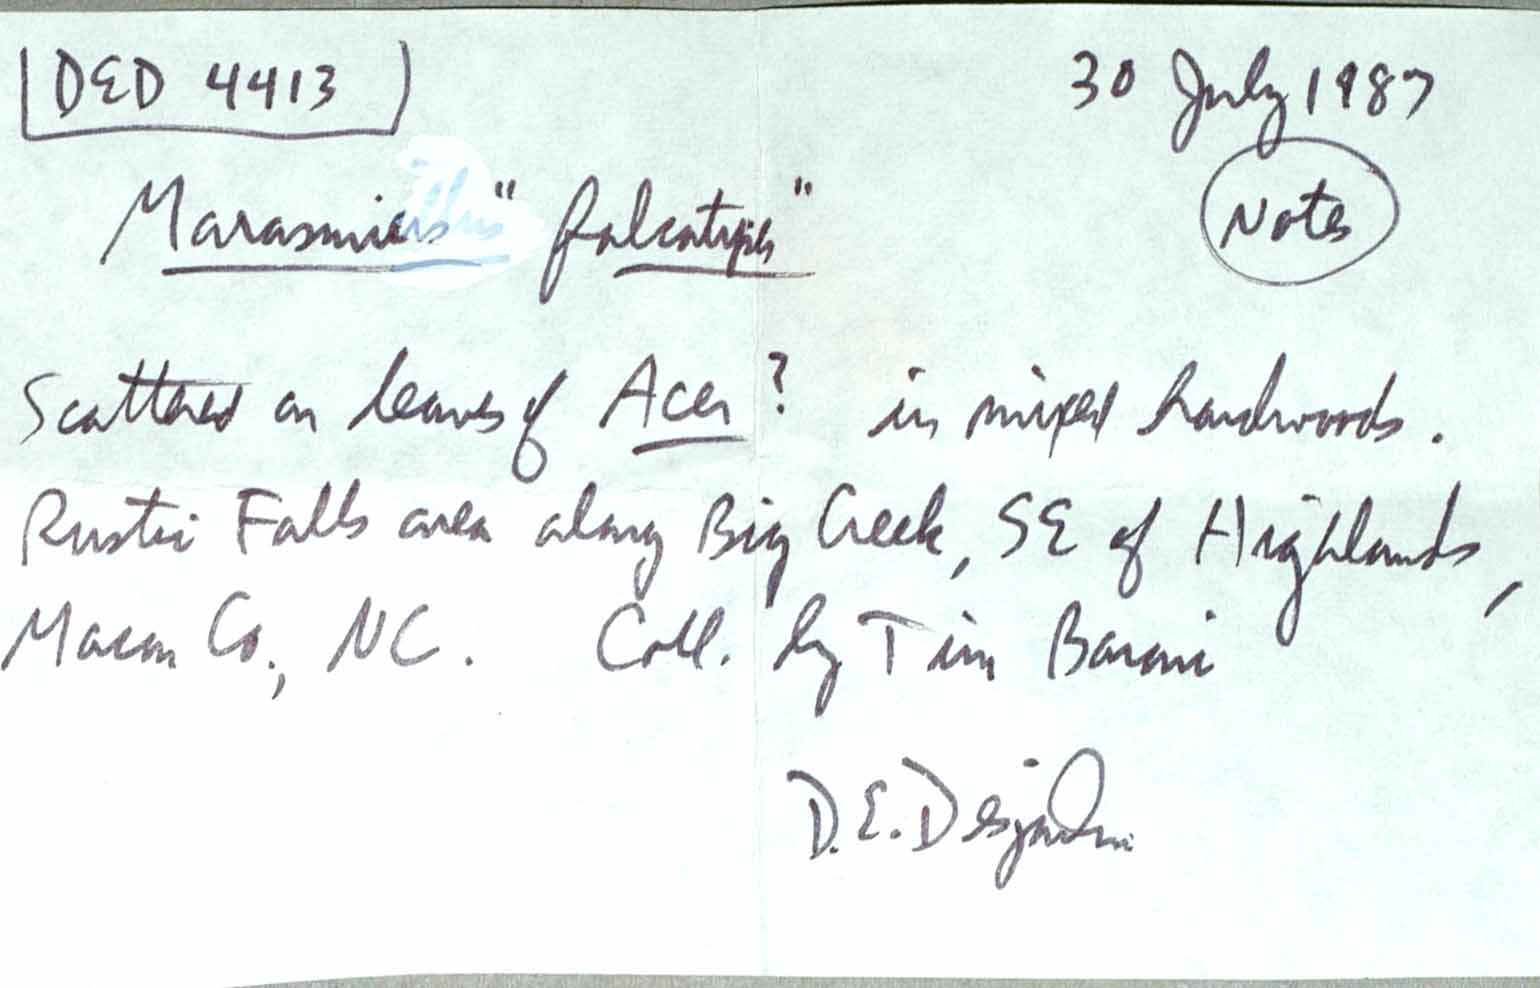 DED 4413
30 July 1987
Notes
Marasmius "falcatipes"
Scattered on leaves of Acer? in mixed hardwoods.
Rustic Falls area along Big Creek, SE of Highlands,
Macon Co., NC. Coll. by Tim Baroni
D.E. Desjardin